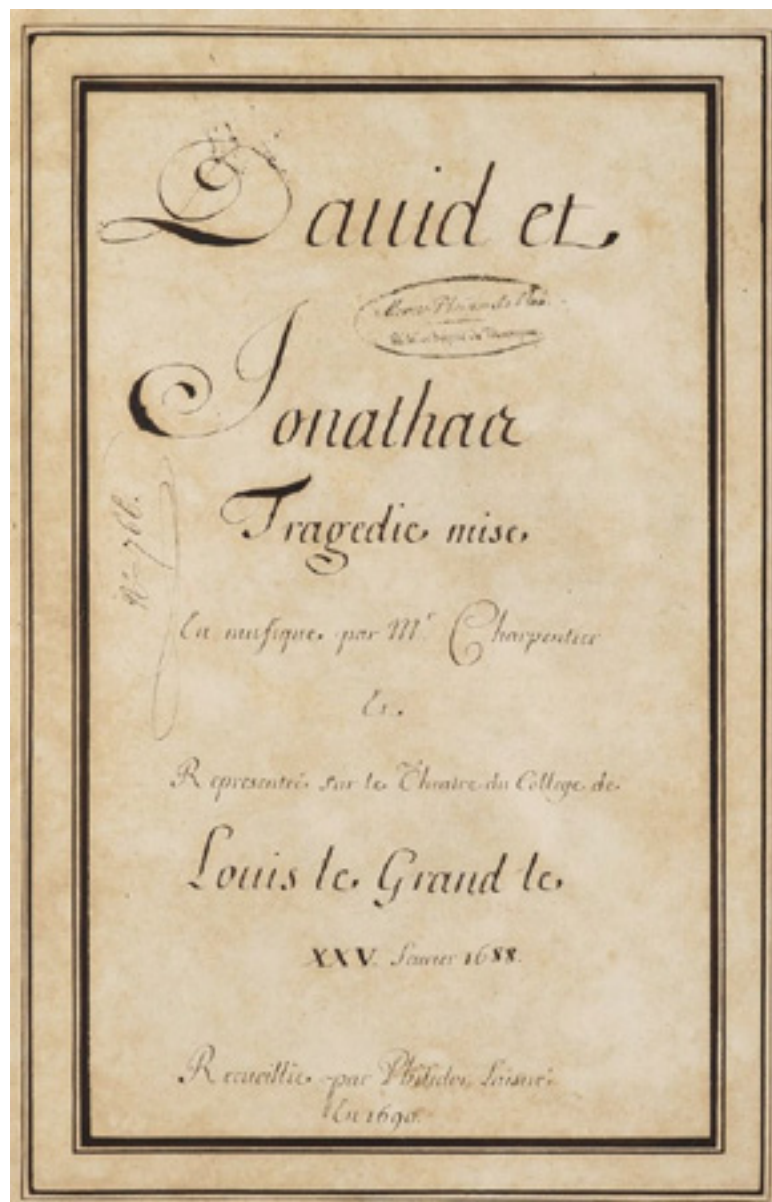 Dauid et
Jonathan
Tragedie mise
En musique par Mr Charpentier
Et
Representé sur le Theatre du College de
Louis le Grand le
XXV. feurier 1688.
Recueillie par Philidor Laisné
En 1690.